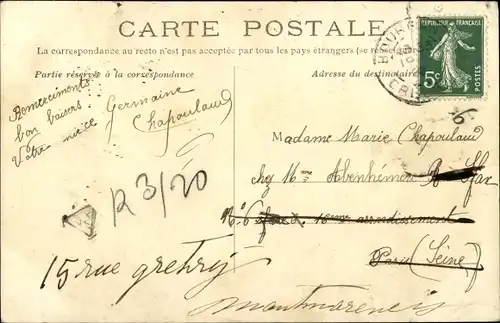 CARTE POSTALE
La correspondance au recto n'est pas acceptée par tous les pays étrangers (se
Partie réservée à la correspondance
Adresse du destinataire
REPUBLIQUE FRANÇAISE
5c
POSTES
Remerciments
bon baisers
Votre nièce Germaine
Chapoulaud
R 3/20
Madame Marie Chapoulaud
chez Mme
16me arrondissement
Paris (Seine)
15 rue gretry
montmorency